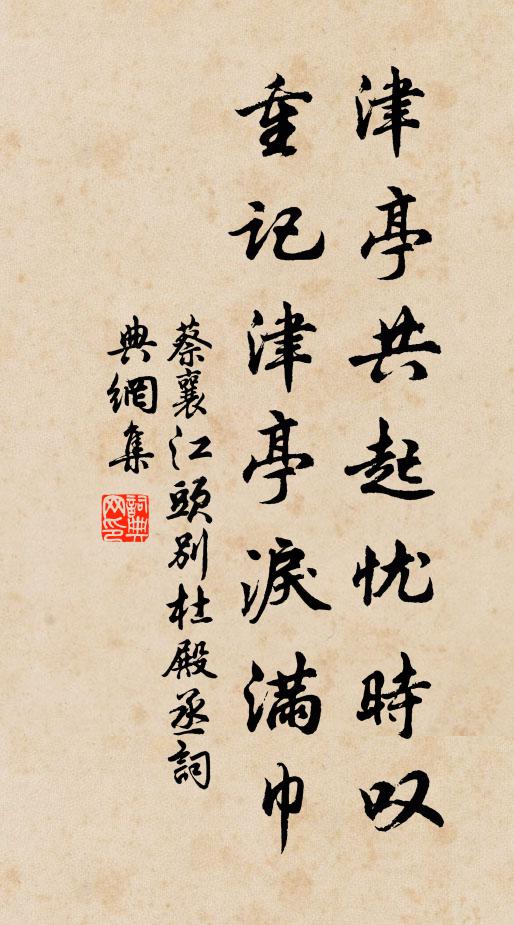 津亭共起忧時叹
重记津亭淚滿巾
蔡襄江頭别杜殿丞詞
典網集
詞典网印